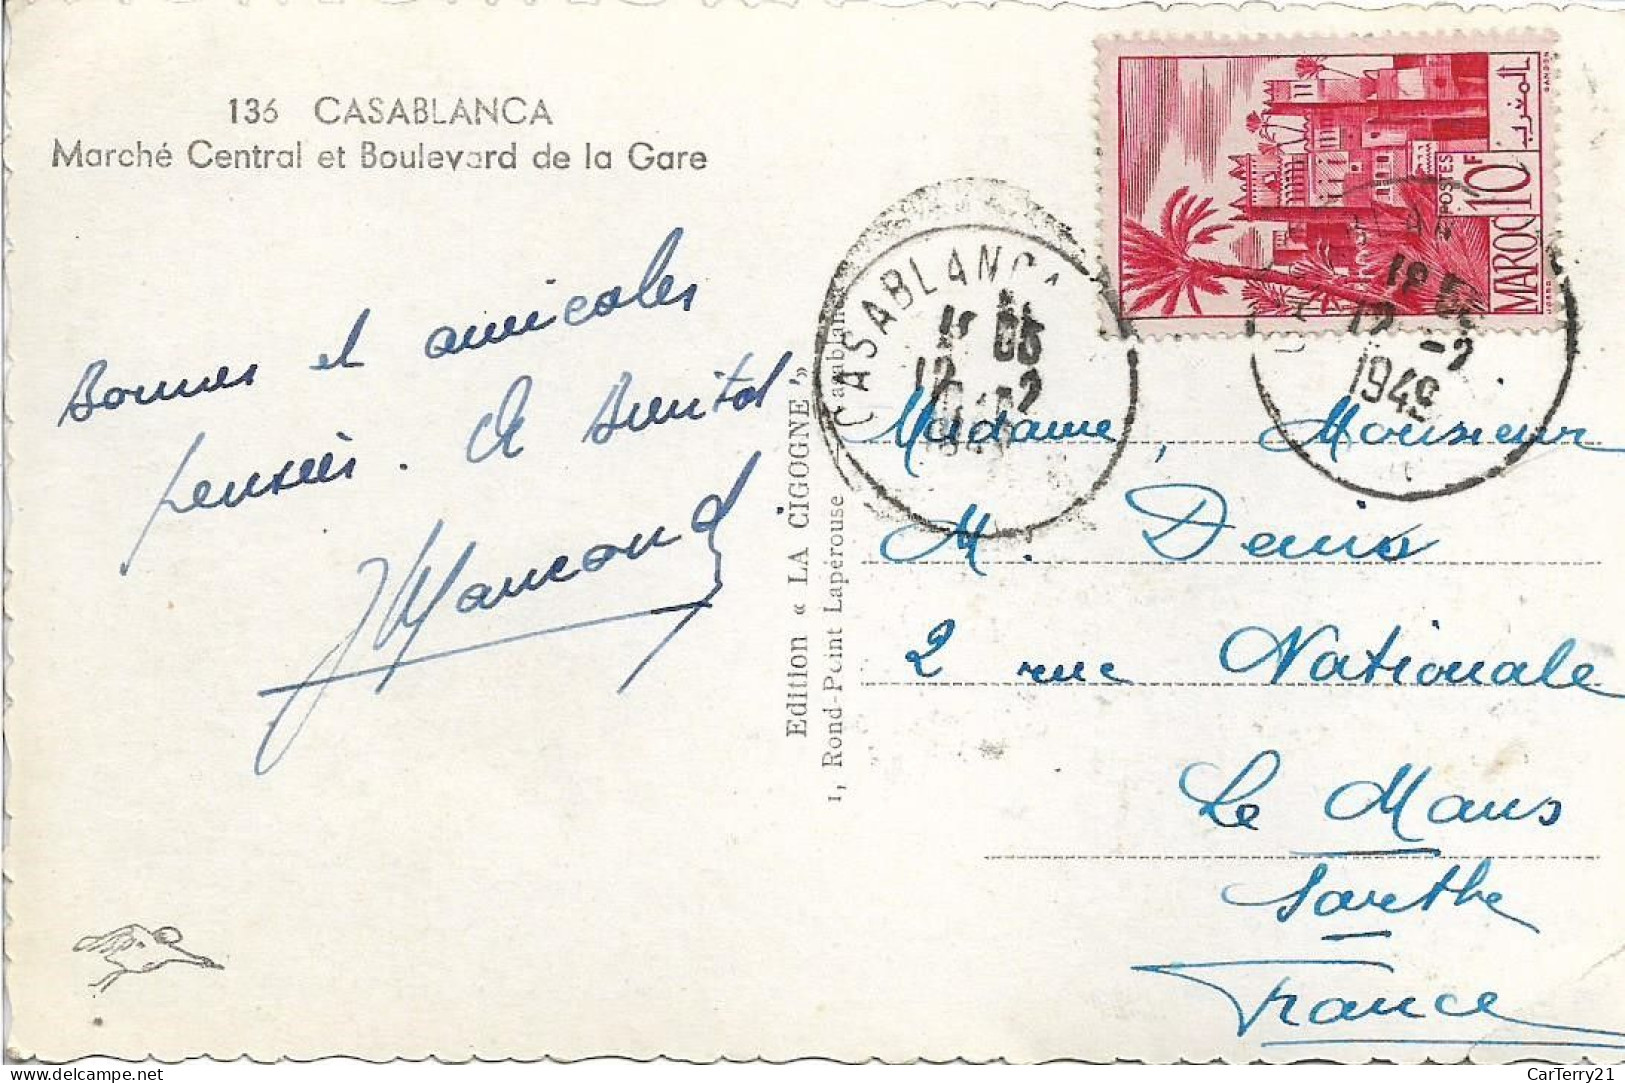 136 CASABLANCA
Marché Central et Boulevard de la Gare
Bonnes et amicales
pensées. A Bientot
Edition « LA CIGOGNE »
1, Rond-Point Laperouse Casablanca
المغرب
POSTES
10F
MAROC
GANDON
CASABLANCA
12 -2
1949
18
12 -2
1949
Madame, Monsieur
M. Denis
2 rue Nationale
Le Mans
Sarthe
France
CarTerry21